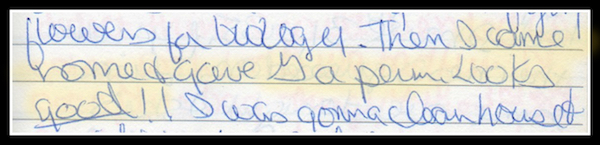 flowers for biology. Then I came
home & gave G a perm. Looks
good!! I was gonna clean house &